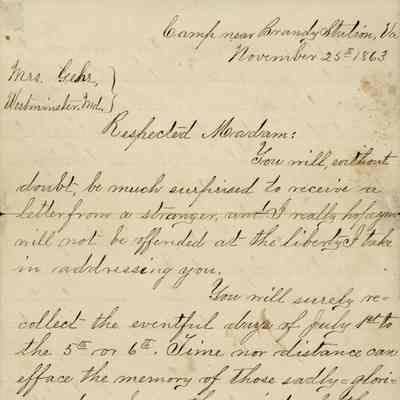 Camp near Brandy Station, Va
November 25th 1863
Mrs. Gehr,
Westminster, Md.
Respected Madam:
You will, without
doubt, be much surprised to receive a
letter from a stranger, and I really hope you
will not be offended at the liberty I take
in addressing you.
You will surely re-
collect the eventful days of July 1st to
the 5th or 6th. Time nor distance can
efface the memory of those sadly-glori-